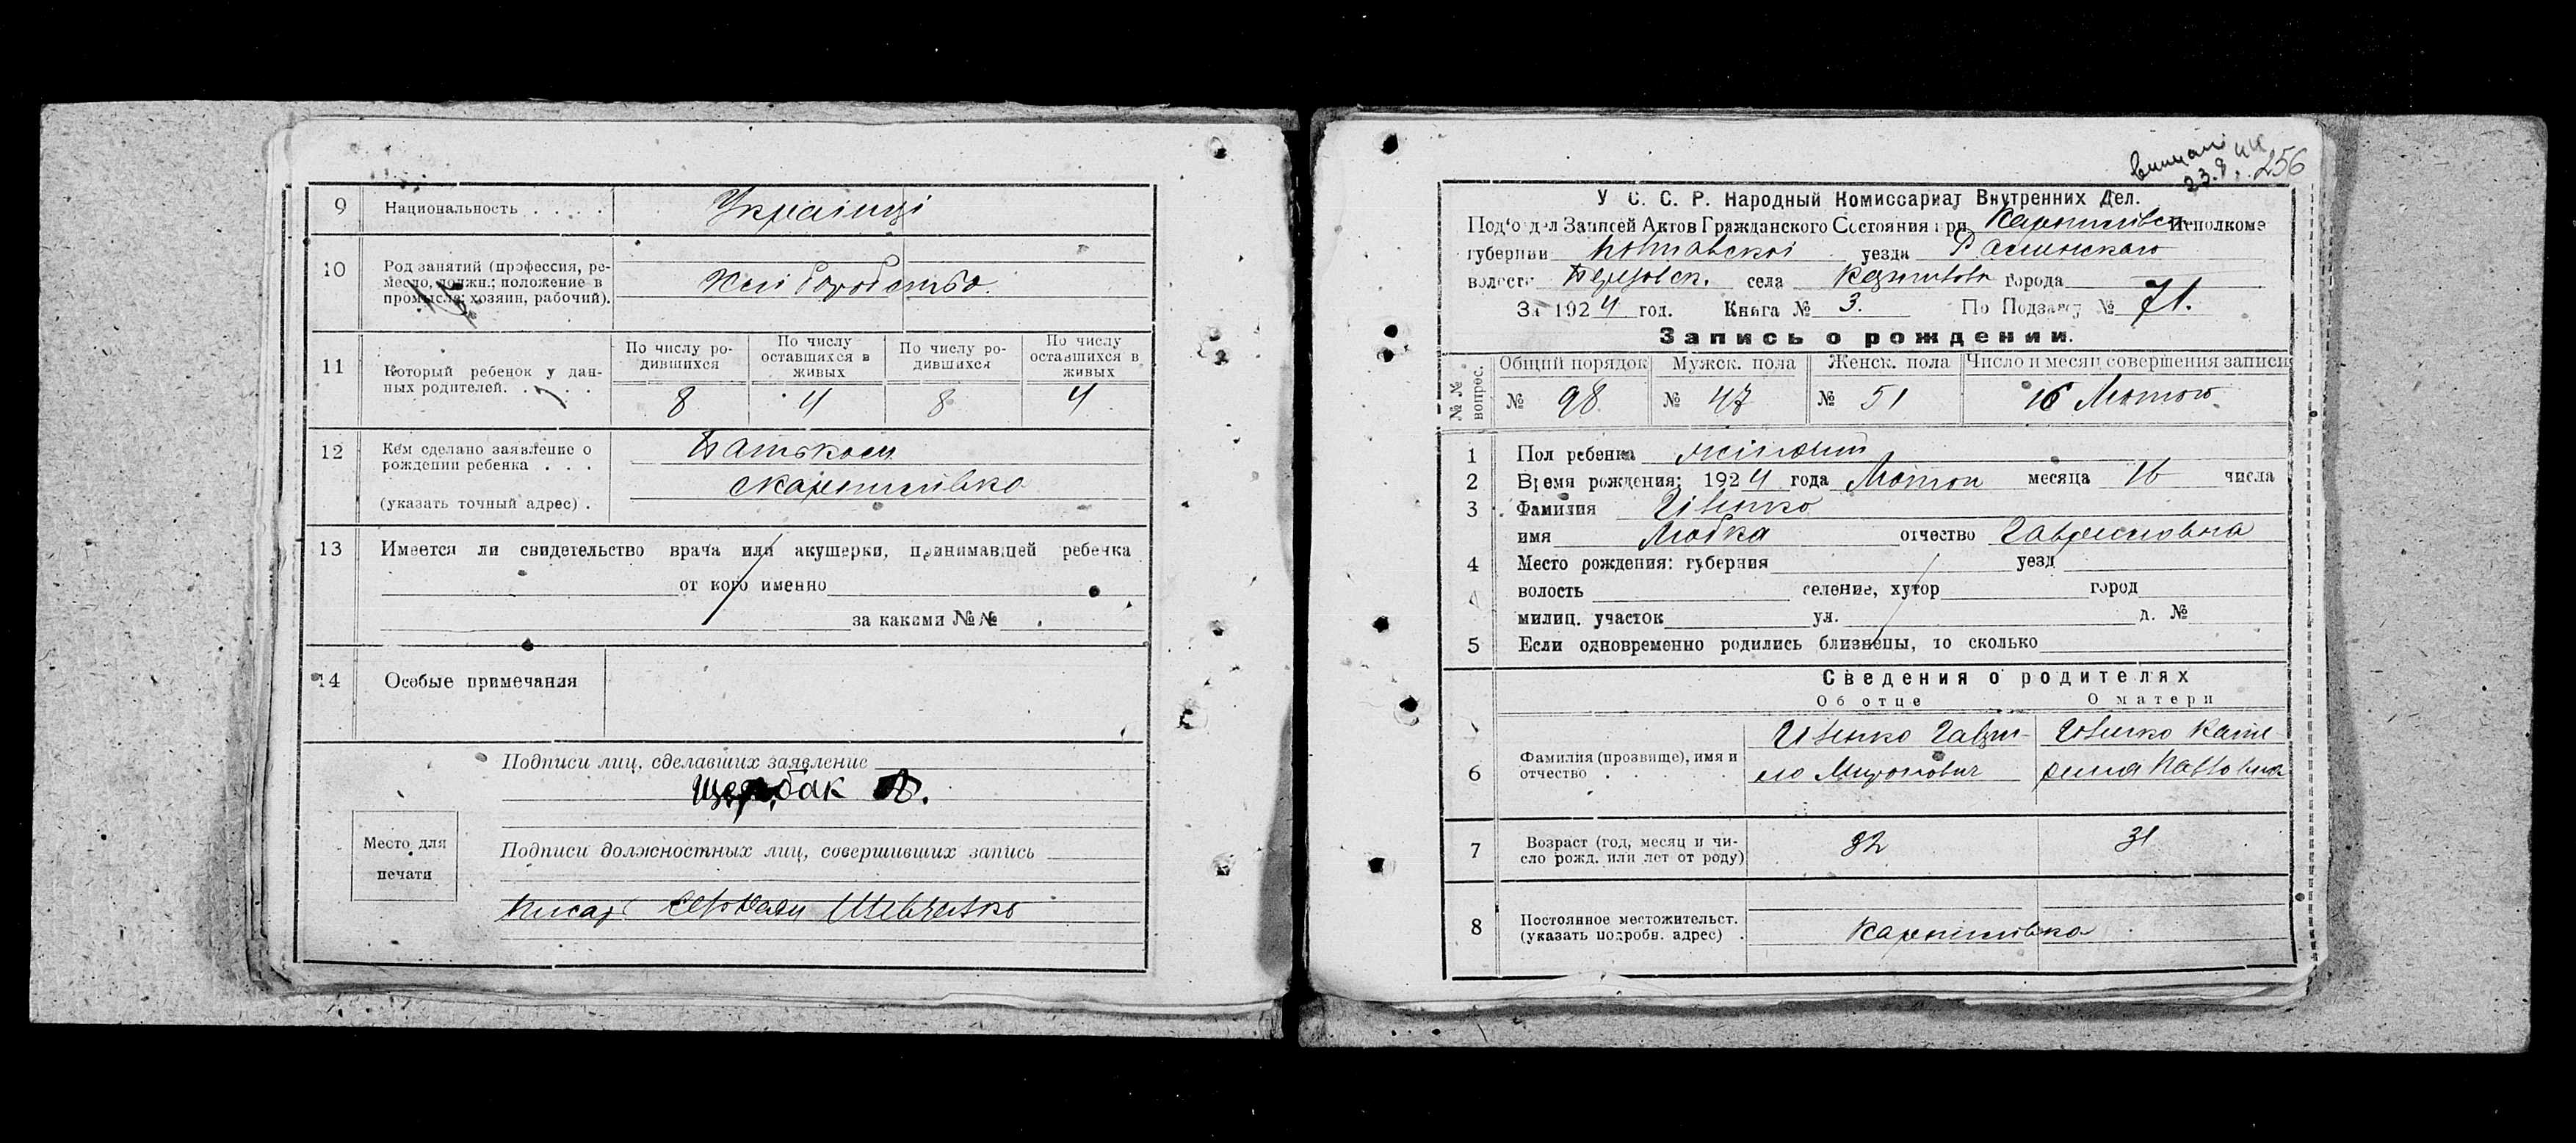 9 Национальность . . . . . Українці
10 Род занятий (профессия, ре-
месло, должн.; положение в
промысле: хозяин, рабочий). Хліборобство.
15
11 Который ребенок у дан-
ных родителей. . . . .
По числу ро-
дившихся
По числу
оставшихся в
живых
По числу ро-
дившихся
По числу
оставшихся в
живых
8 4 8 4
12 Кем сделано заявление о
рождении ребенка . . . Батьком
(указать точный адрес) .
13 Имеется ли свидетельство врача или акушерки, принимавшей ребенка
от кого именно
за какими №№
14 Особые примечания
Подписи лиц, сделавших заявление
Щербак
Место для
печати
Подписи должностных лиц, совершивших запись
Писарь Шевченко
256
23.8.44
У С. С. Р. Народный Комиссариат Внутренних Дел.
Под'отдел Записей Актов Гражданского Состояния при Исполкоме
губернии Полтавскої уезда Роменського
волости села города
За 1924 год. Книга № 3. По Подзагсу № 71.
Запись о рождении.
№№ вопрос. Общий порядок Мужск. пола Женск. пола Число и месяц совершения записи
№ 98 № 47 № 51 16 Лютого
1 Пол ребенка жіночий
2 Время рождения: 1924 года месяца 16 числа
3 Фамилия Івенко
имя Любка отчество Гавриловна
4 Место рождения: губерния уезд
волость селение, хутор город
милиц. участок ул. д. №
5 Если одновременно родились близнецы, то сколько
Сведения о родителях
Об отце О матери
6 Фамилия (прозвище), имя и
отчество . . . . .
Івенко Гаври-
ло Миронович
Івенко Кате
рина Павловна
7 Возраст (год, месяц и чи-
сло рожд. или лет от роду) 32 31
8 Постоянное местожительст.
(указать подробн. адрес) .